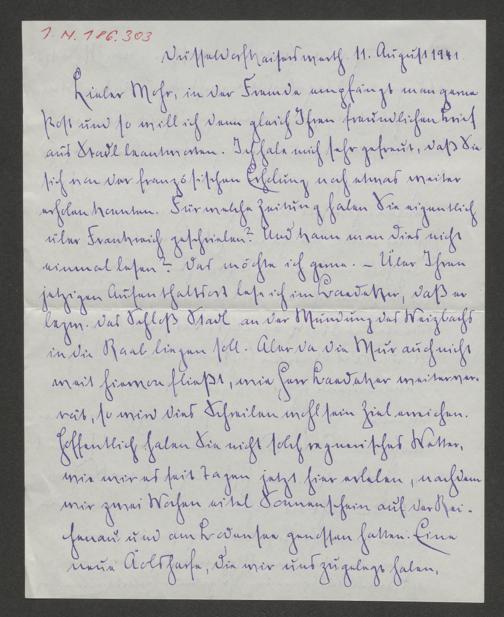 I. N. 186.303
Düsseldorf-Kaiserswerth 11. August 1941.
Lieber Mohr, in der Fremde empfängt man gerne
Post und so will ich denn gleich Ihren freundlichen Brief
aus Stadl beantworten. Ich habe mich sehr gefreut, daß Sie
sich von der französischen Erholung noch etwas weiter
erholen konnten. Für welche Zeitung haben Sie eigentlich
über Frankreich geschrieben? Und kann man dies nicht
einmal lesen? Das möchte ich gerne. – Über Ihren
jetzigen Aufenthaltsort lese ich im Baedeker, daß er
bezw. das Schloß Stadl an der Mündung des Weizbachs
in die Raab liegen soll. Aber da die Mur auch nicht
weit hiervon fließt, wie Herr Baedeker weiter ver-
rät, so wird dies Schreiben wohl sein Ziel erreichen.
Hoffentlich haben Sie nicht solch regnerisches Wetter,
wie wir es seit Tagen jetzt hier erleben, nachdem
wir zwei Wochen eitel Sonnenschein auf der Rei-
chenau und am Bodensee genossen hatten. Eine
neue Äolsharfe, die wir uns zugelegt haben,